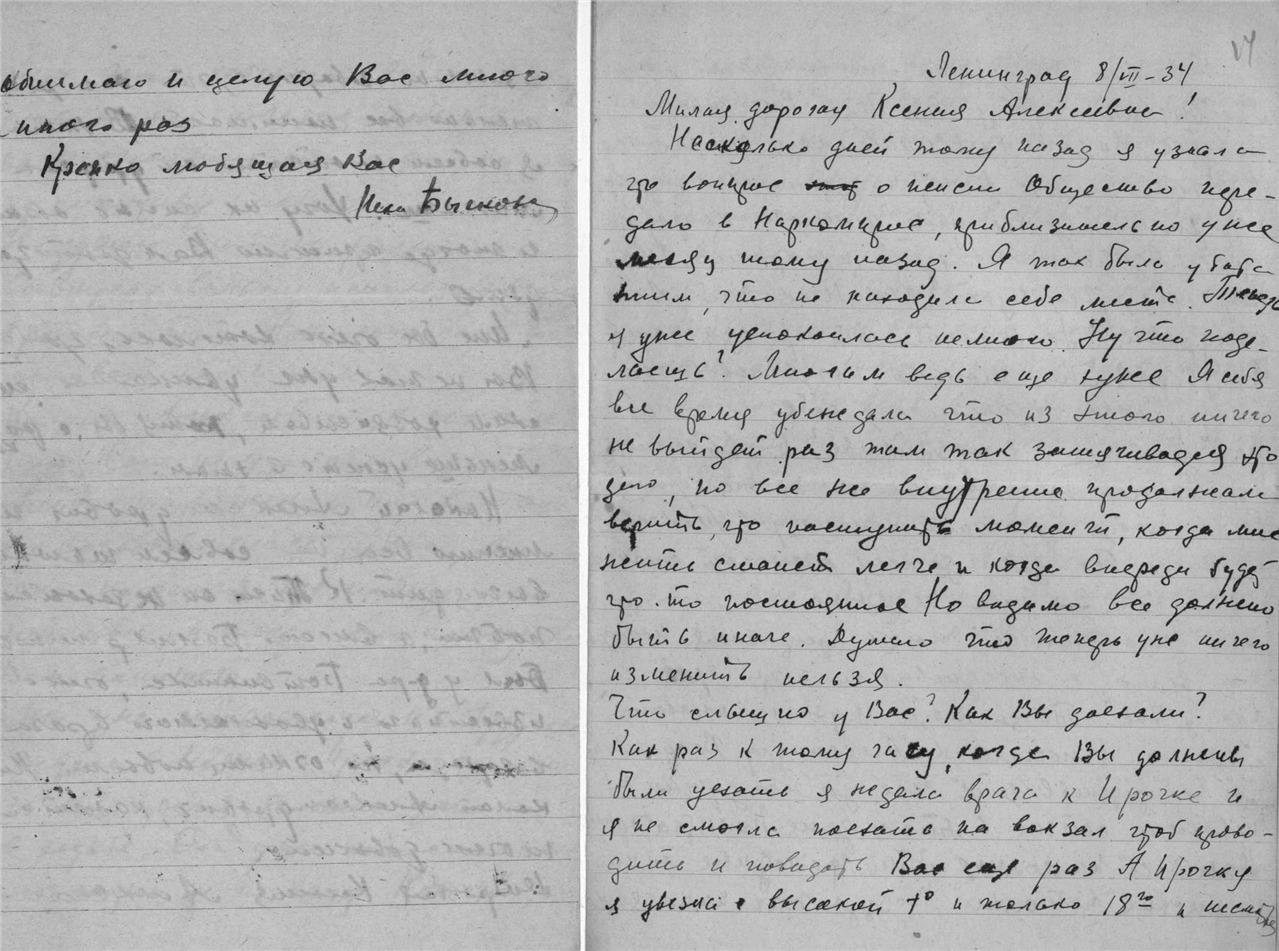 обнимаю и целую Вас много
много раз
Крепко любящая Вас
Быкова
17
Ленинград 8/VII-34
Милая, дорогая Ксения Алексеевна!
Несколько дней тому назад я узнала
что вопрос о пенсии Общество пере-
дало в Наркомпрос, приблизительно уже
месяц тому назад. Я так была убита
этим, что не находила себе места. Теперь
я уже успокоилась немного. Ну что поде-
лаешь? Многим ведь еще хуже Я себя
все время убеждала что из этого ничего
не выйдет раз там так затягивается это
дело, но все же внутренне продолжала
верить, что наступит момент, когда мне
жить станет легче и когда впереди будет
что-то постоянное Но видимо все должно
быть иначе. Думаю что теперь уже ничего
изменить нельзя.
Что слышно у Вас? Как Вы доехали?
Как раз к тому часу, когда Вы должны
были уехать я ждала врача к Ирочке и
я не смогла поехать на вокзал чтоб прово-
дить и повидать Вас еще раз А Ирочку
я увезла с высокой t° и только 18го и